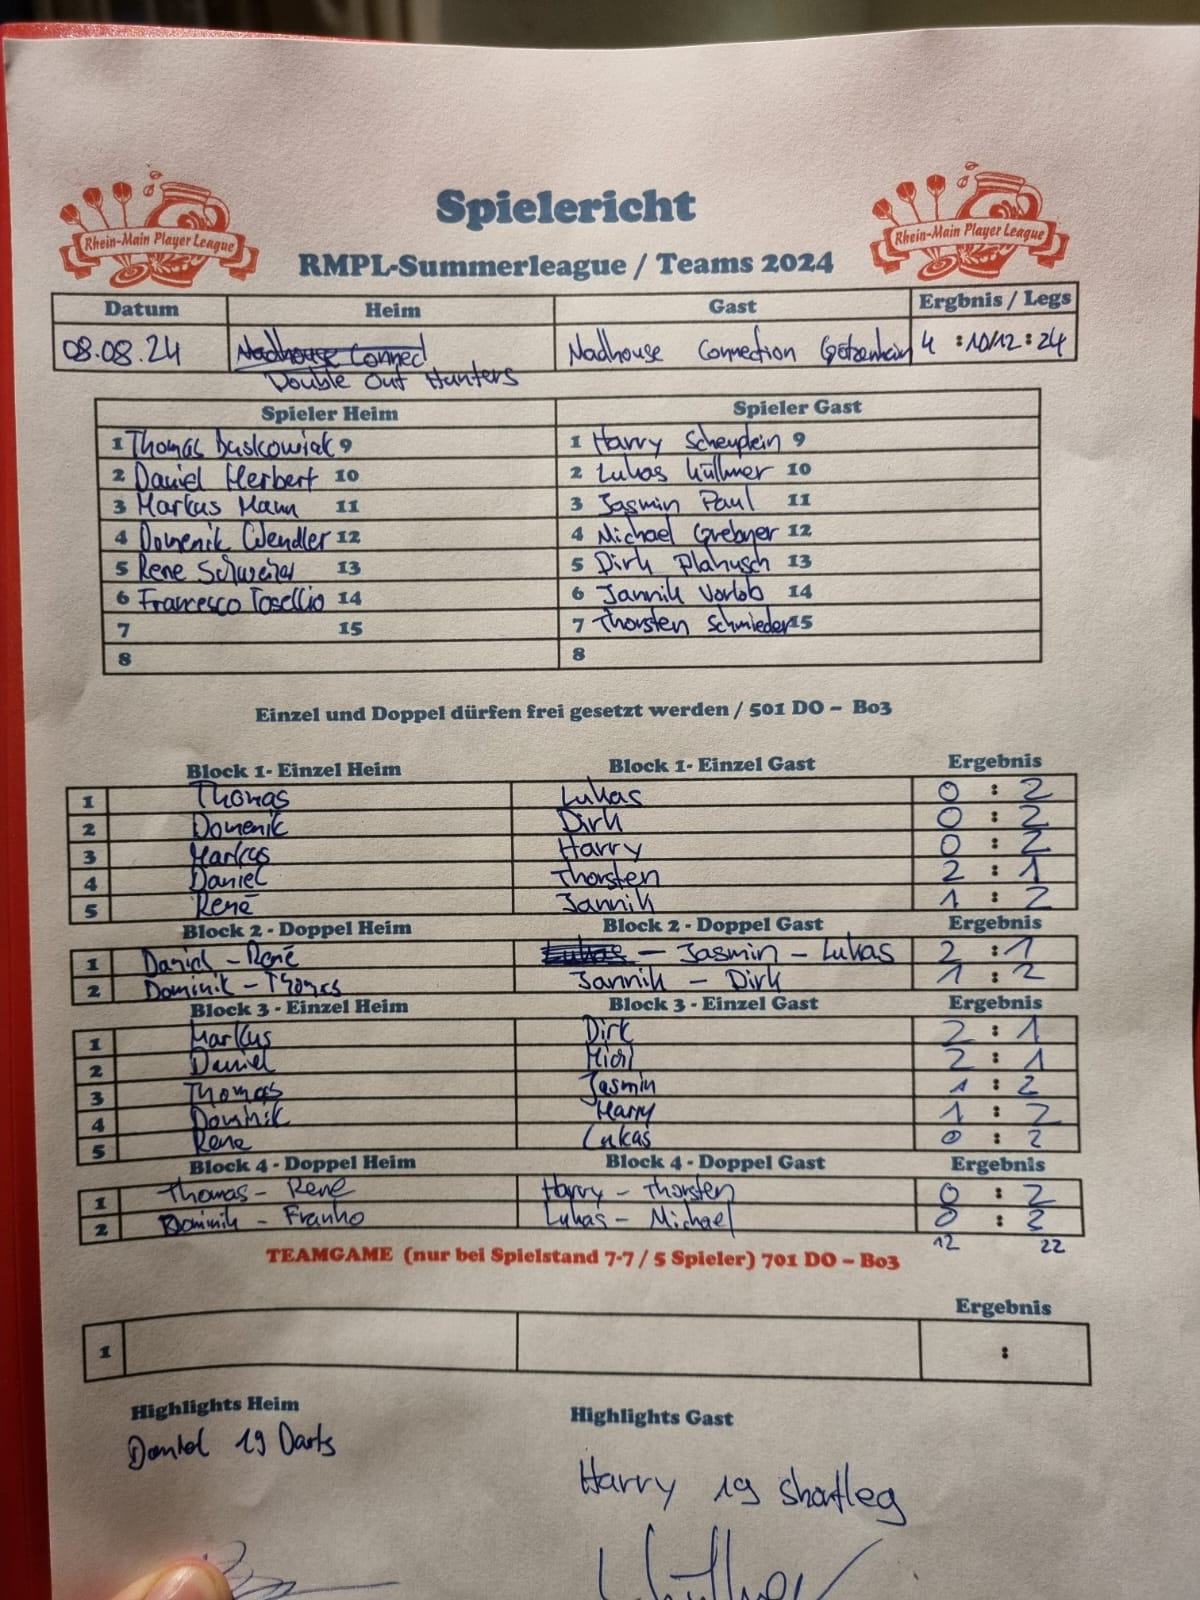 Rhein-Main Player League
Rhein-Main Player League
Spielericht
RMPL-Summerleague / Teams 2024
Datum Heim Gast Ergbnis / Legs
08.08.24 Nadhouse Conned Nadhouse Connection Götzenhain 4 : 10/12 : 24
Double Out Hunters
Spieler Heim Spieler Gast
1 Thomas Duskowiak 9 1 Harry Scheuplein 9
2 Daniel Herbert 10 2 Lukas Küllmer 10
3 Markus Mann 11 3 Jasmin Paul 11
4 Domenik Wendler 12 4 Michael Grebner 12
5 Rene Schweizer 13 5 Dirk Plahusch 13
6 Francesco Tosellio 14 6 Jannik Vorlob 14
7 15 7 Thorsten Schmieder 15
8 8
Einzel und Doppel dürfen frei gesetzt werden / 501 DO – Bo3
Block 1- Einzel Heim Block 1- Einzel Gast Ergebnis
1 Thomas Lukas 0 : 2
2 Domenik Dirk 0 : 2
3 Markus Harry 0 : 2
4 Daniel Thorsten 2 : 1
5 René Jannik 1 : 2
Block 2 - Doppel Heim Block 2 - Doppel Gast Ergebnis
1 Daniel - René Lukas - Jasmin - Lukas 2 : 1
2 Dominik - Thomas Jannik - Dirk 1 : 2
Block 3 - Einzel Heim Block 3 - Einzel Gast Ergebnis
1 Markus Dirk 2 : 1
2 Daniel Michl 2 : 1
3 Thomas Jasmin 1 : 2
4 Dominik Harry 1 : 2
5 Rene Lukas 0 : 2
Block 4 - Doppel Heim Block 4 - Doppel Gast Ergebnis
1 Thomas - René Harry - Thorsten 0 : 2
2 Dominik - Franko Lukas - Michael 0 : 2
12 22
TEAMGAME (nur bei Spielstand 7-7 / 5 Spieler) 701 DO – Bo3
Ergebnis
1 :
Highlights Heim Highlights Gast
Daniel 19 Darts
Harry 19 Shortleg